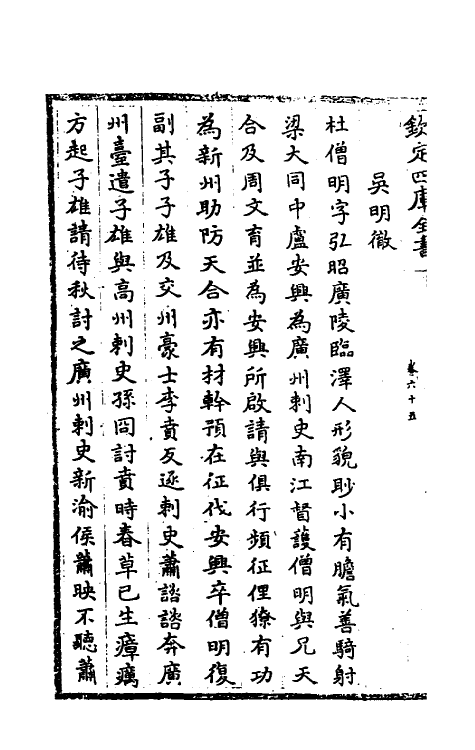 欽定四庫全書
卷六十五
吳明徹
杜僧明字弘昭廣陵臨澤人形貌眇小有膽氣善騎射
梁大同中盧安興為廣州刺史南江督護僧明與兄天
合及周文育並為安興所啟請與俱行頻征俚獠有功
為新州助防天合亦有材幹預在征伐安興卒僧明復
副其子子雄及交州豪士李賁反逐刺史蕭諮諮奔廣
州臺遣子雄與高州刺史孫冏討賁時春草已生瘴癘
方起子雄請待秋討之廣州刺史新渝侯蕭映不聽蕭